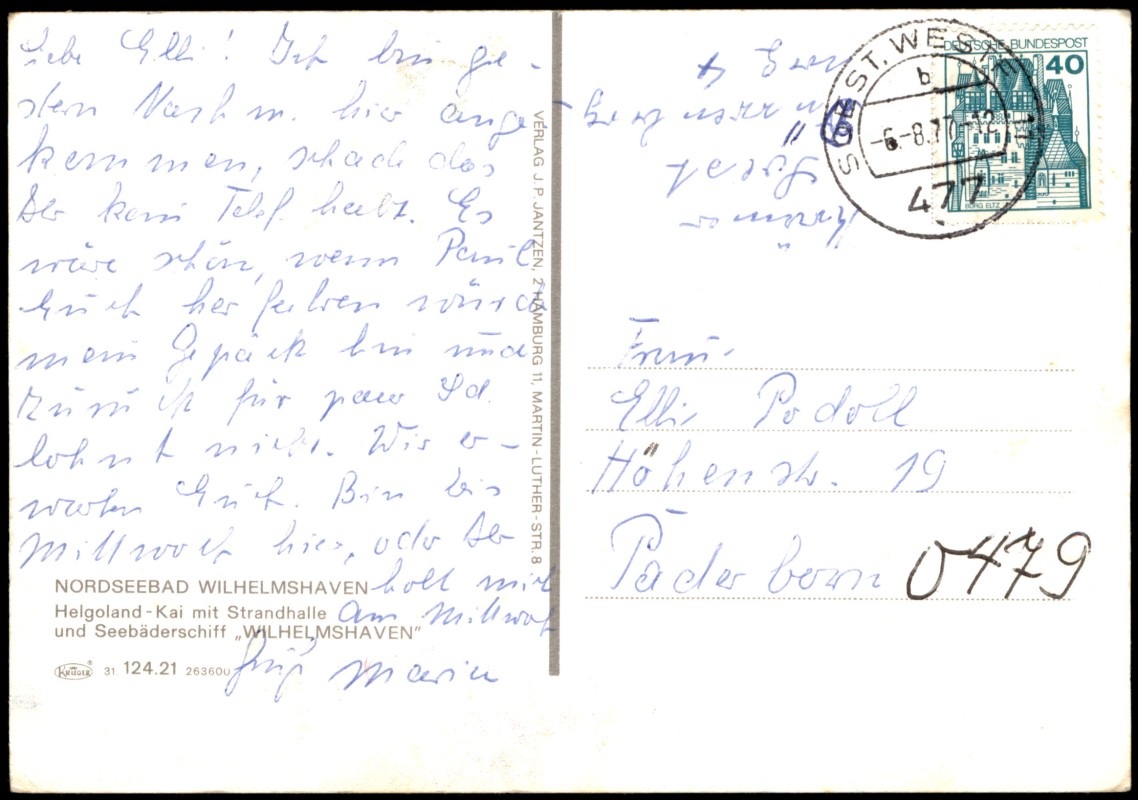 Liebe Elli! Ich bin ge-
stern Nachm. hier ange
kommen, schade das
Ihr kein Telf. habt. Es
wäre schön, wenn Paul
Euch her fahren würde
mein Gepäck hin und
zurück für paar Sd.
lohnt nicht. Wir er-
warten Euch. Bin bis
Mittwoch hier, oder Ihr
holt mich
am Mittwoch
Gruß Maria
NORDSEEBAD WILHELMSHAVEN
Helgoland-Kai mit Strandhalle
und Seebäderschiff „WILHELMSHAVEN"
KRÜGER® 31 124.21 26360U
VERLAG J. P. JANTZEN, 2 HAMBURG 11, MARTIN-LUTHER-STR. 8
SOEST, WESTF
b
-6.-8.77-12
477
DEUTSCHE BUNDESPOST
40
BURG ELTZ
Frau
Elli Podoll
Höhenstr. 19
Paderborn 0479